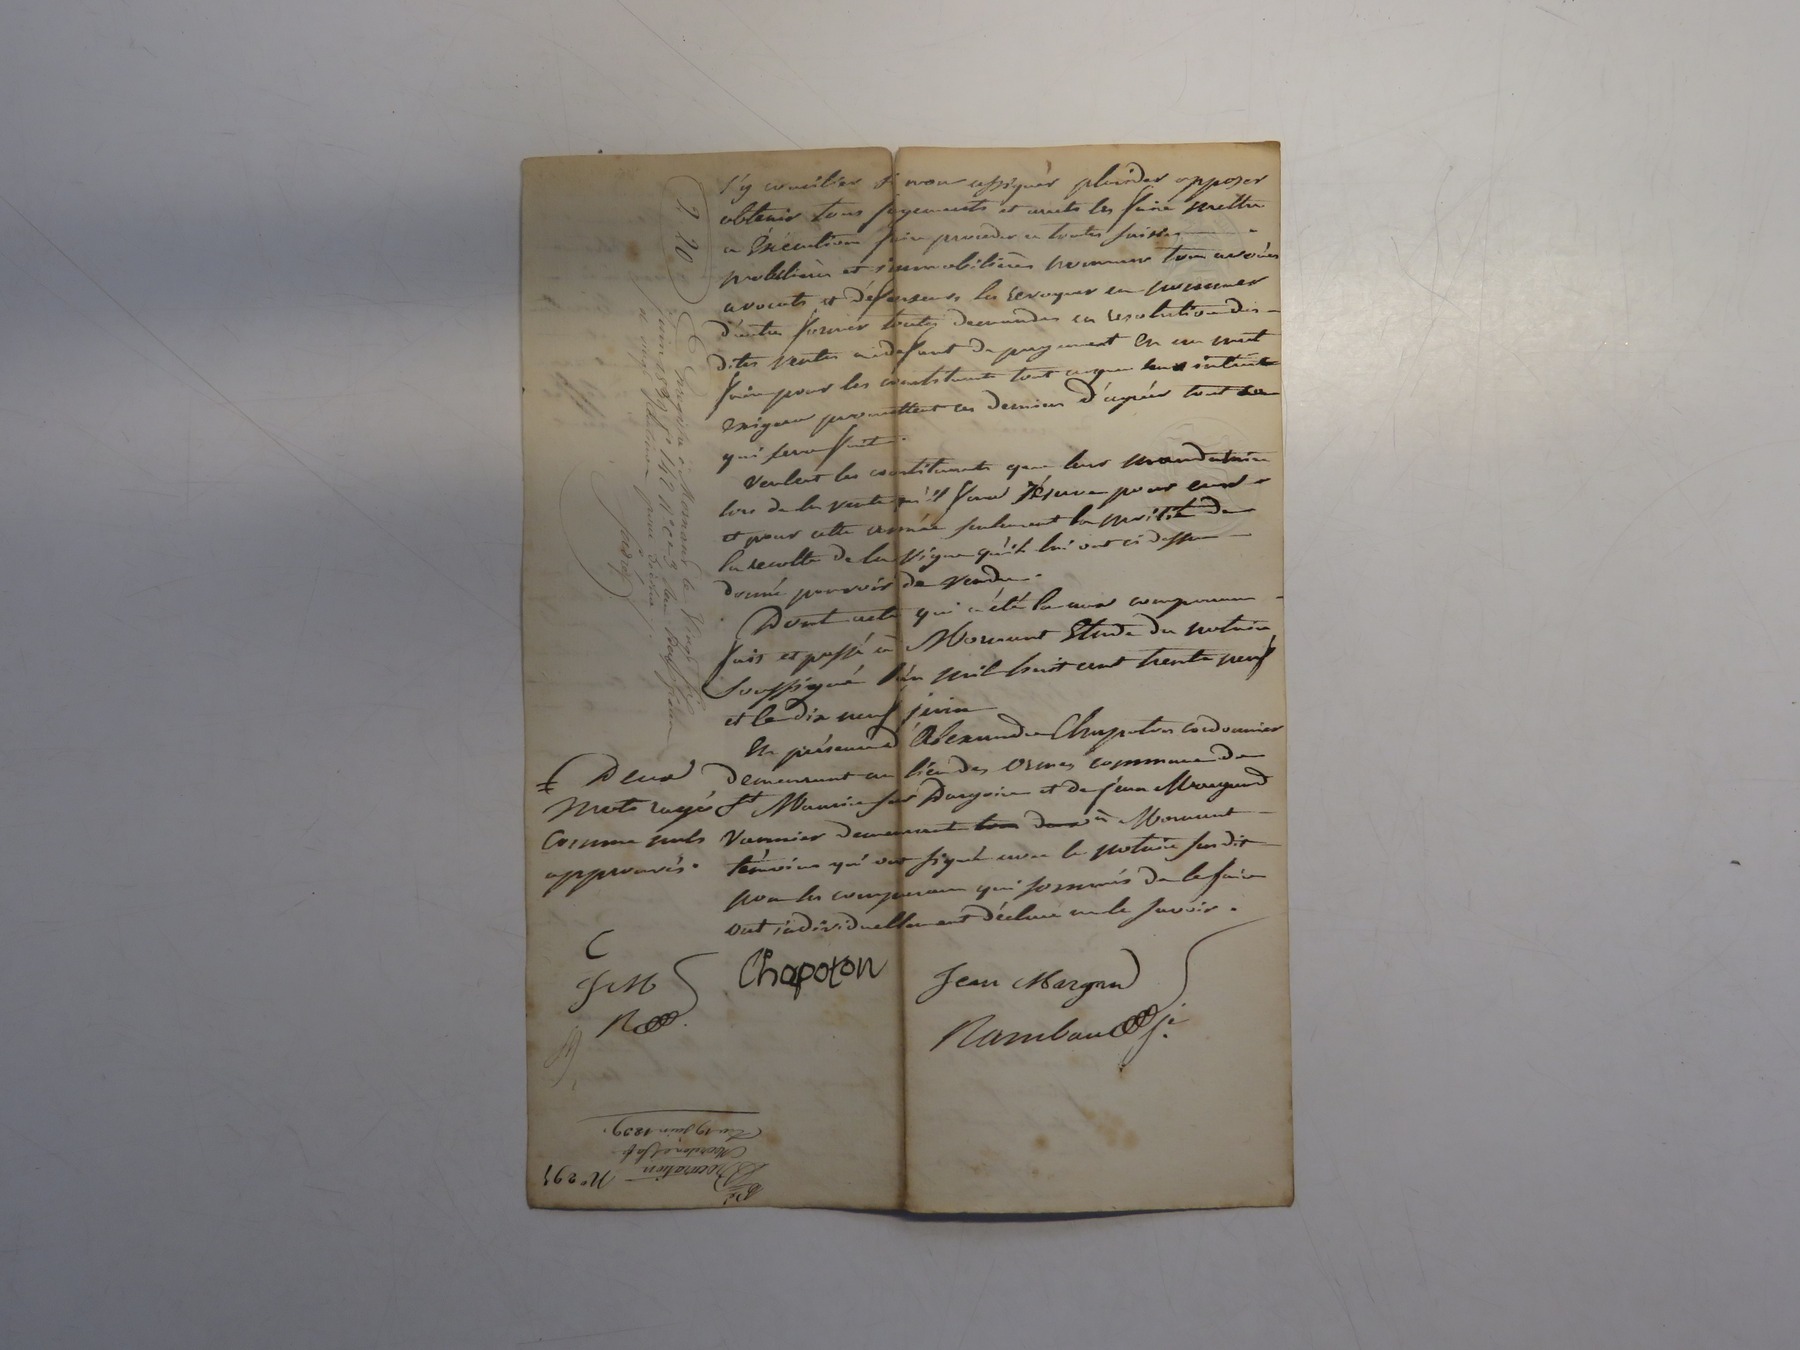 s'y concilier si non assigner plaider opposer
obtenir tous jugements et arrets les faire mettre
a Exécution faire proceder a toutes saisies
mobilières et immobilières nommer tous avoués
avocats et défenseurs les revoquer en nommer
d'autres former toutes demandes en resolution des
dites ventes a defaut de payement En un mot
faire pour les constituants tout ce que leurs intérêts
exigeron promettent ces derniers d'agréer tout ce
qui sera fait.
Veulent les constituants que leur mandataire
lors de la vente qu'il fera réserve pour eux
et pour cette année seulement la moitié de
la recolte de la vigne qu'ils lui ont ci dessus
donné pouvoir de vendre.
Dont acte qui a été lu aux comparans
fait et passé à Mornant Etude du notaire
soussigné l'an mil huit cent trente neuf
et le dix neuf juin
En présence d'Alexandre Chapoton cordonnier
demeurant au lieu des Ormes commune de
St Maurice sur Dargoire et de jean Margand
vannier demeurant à Mornant
témoins qui ont signé avec le notaire susdit
non les comparans qui sommés de le faire
ont individuellement déclaré ne le savoir.
Deux
mots rayés
comme nuls
approuvés.
C
J M
R
Chapoton
Jean Margand
Rambaud je
R. 20 c
Enregistré à Mornant le Vingt
juin 1839 f° 142
Du 19 juin 1839.
Procuration
N° 291